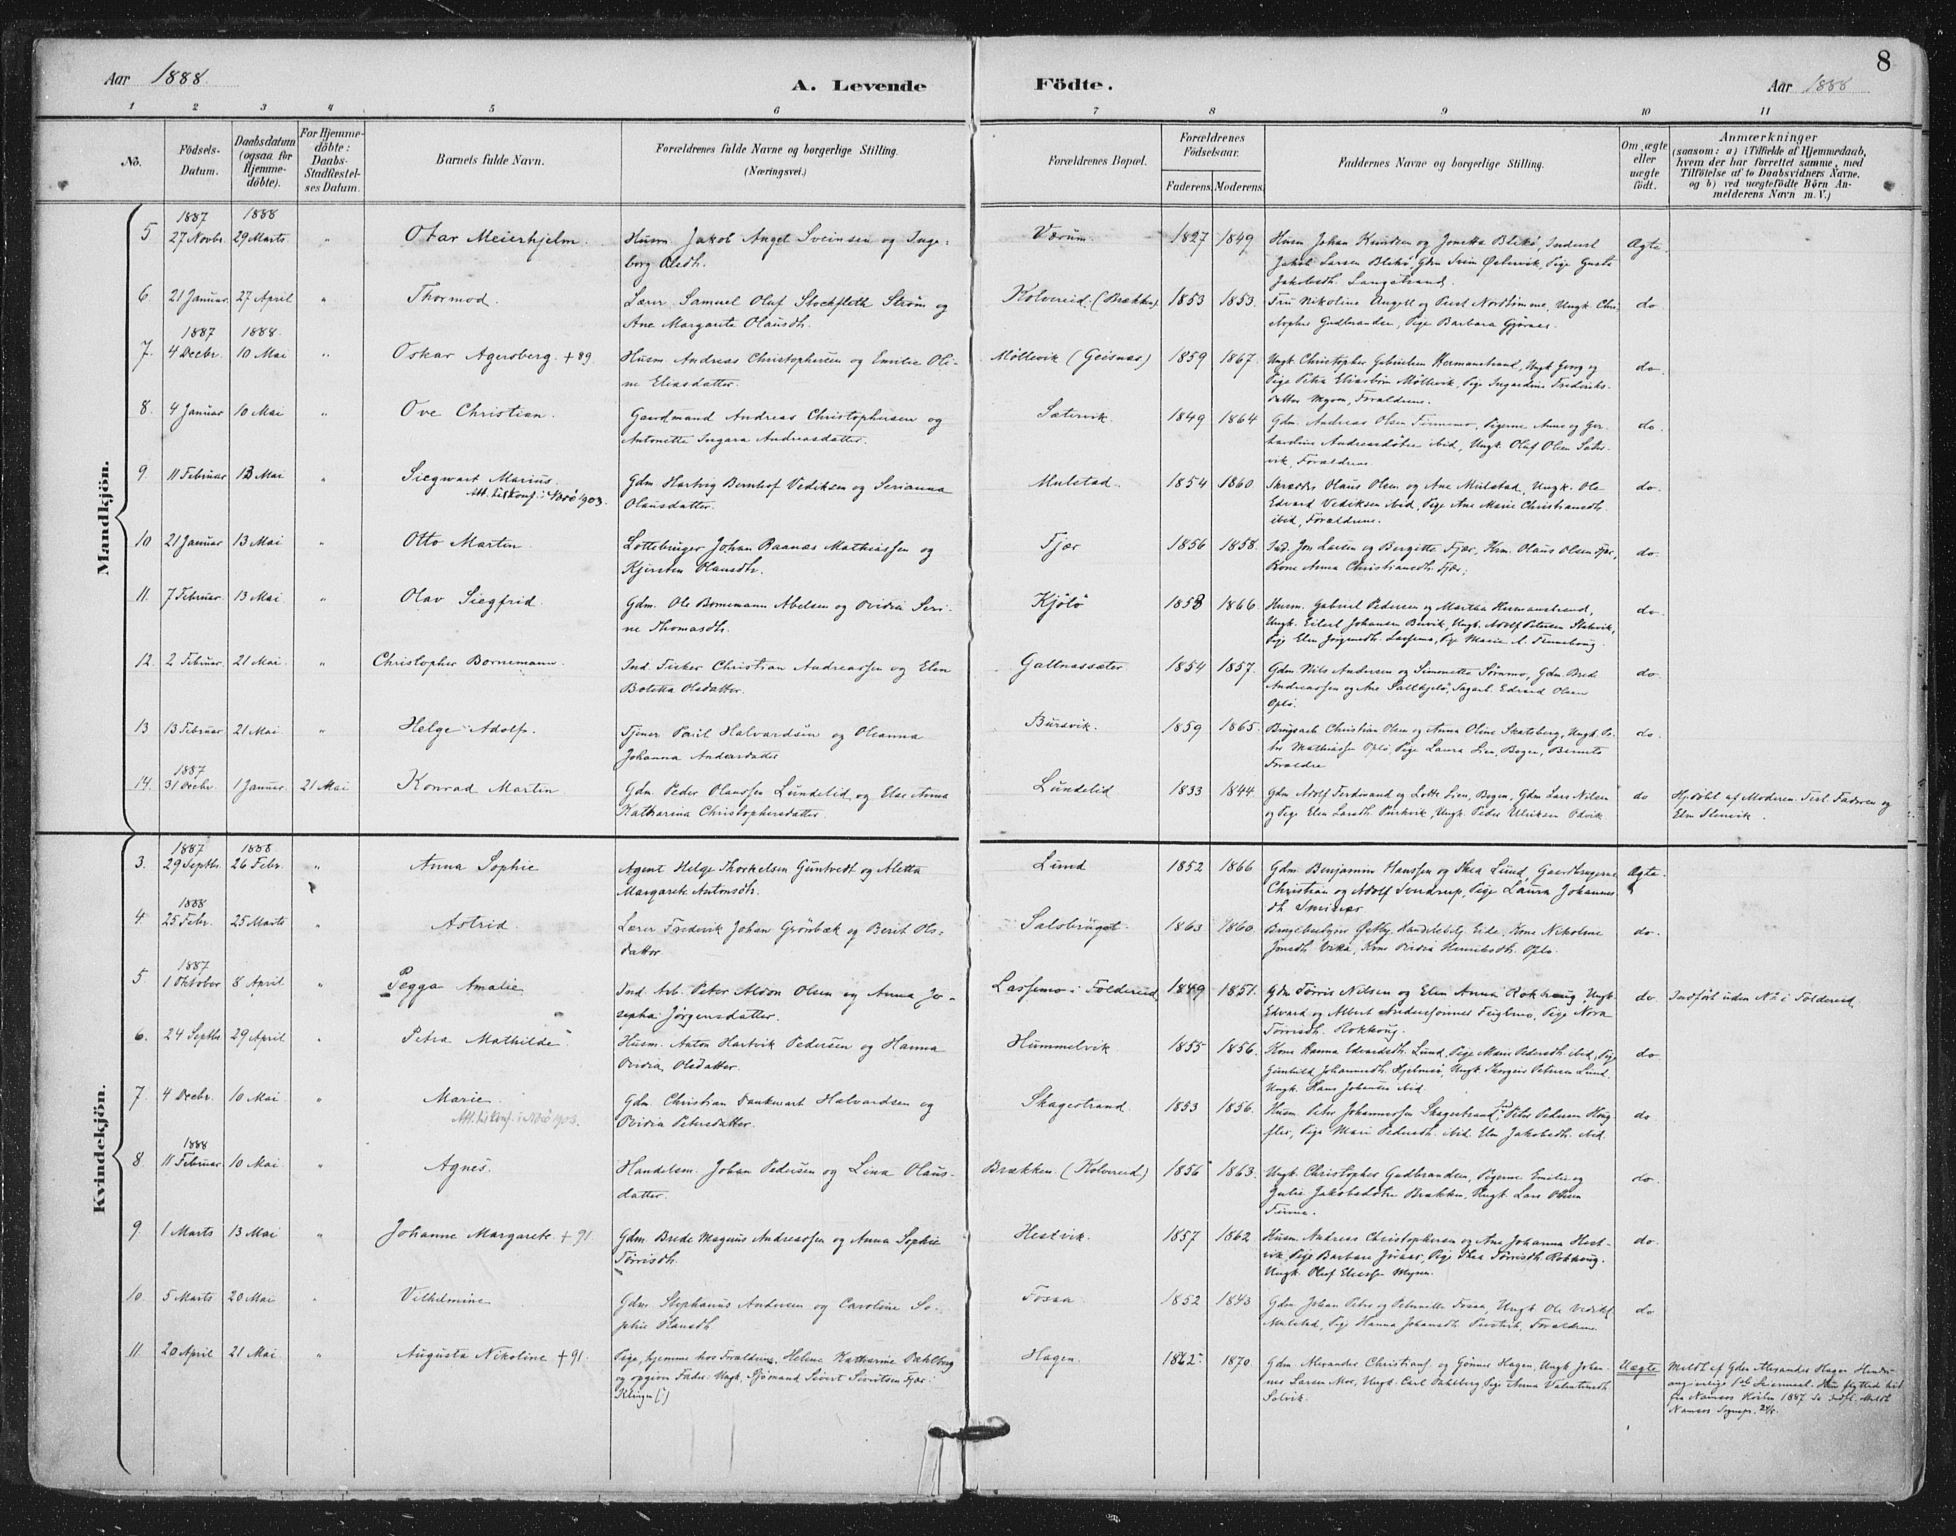 8
Aar 1888.
A. Levende Födte.
Aar 1888
1 2 3 4 5 6 7 8 9 10 11
No.
Födsels-Datum.
Daabsdatum (ogsaa for Hjemme-döbte).
For Hjemme-döbte: Daabs-Stadfæstel-ses Datum.
Barnets fulde Navn.
Forældrenes fulde Navne og borgerlige Stilling. (Næringsvei.)
Forældrenes Bopæl.
Forældrenes Födselsaar.
Faderens. Moderens.
Faddernes Navne og borgerlige Stilling.
Om ægte eller uægte födt.
Anmærkninger
(saasom: a) i Tilfælde af Hjemmedaab, hvem der har forrettet samme, med Tilföielse af to Daabsvidners Navne. og b) ved uægtefödte Börn An-melderens Navn m. V.)
Mandkjön.
1887 1888
5 27 Novbr. 29 Marts " Otar Meierhjelm. Husm. Jakob Angel Sveinsen og Inge-
borg Olsdh. Værum. 1827 1849 Husm Johan Knudsen og Jonetta Blikö, Inderst
Jakob Larsen Blikö, Gdm Svein Østervik, Pige Gusta
Jakobsdh. Langstrand. Ægte.
6. 21 Januar. 27 April " Thormod. Lærer Samuel Oluf Stockfleth Ström og
Ane Margarete Olausdh. Kolvereid. (Brækka) 1853 1853. Fru Nikoline Angell og Præst Nordtömme, Ungk. Chri
stopher Gudbrandsen, Pige Barbara Gjörnes. do
1887 1888.
7. 4 Decbr. 10 Mai " Oskar Agersberg. + 89. Husm. Andreas Christophersen og Emilie Oli-
ne Eliasdatter. Möllevik (Geisnæs) 1859 1867. Ungk. Christopher Gabrielsen Hermanstrand, Ungk Georg og
Pige Petra Eliasbörn Möllevik, Pige Ingardine Frederiks-
datter Myrom, Forældrene. do.
8. 4 Januar 10 Mai " Ove Christian. Gaardmand Andreas Christophersen og
Antonette Ingara Andreasdatter. Sætervik. 1849 1864 Gdm. Andreas Olsen Finnemo, Pigerne Anne og Ger-
hardine Andreasdötre ibid, Ungk. Oluf Olsen Sæter-
vik, Forældrene. do.
9. 11 Februar 13 Mai " Siegwart Marius.
Att. til Konf. i Nærö 1903. Gdm Hartvig Bernhof Vediksen og Serianna
Olausdatter. Mulstad. 1854 1860 Skrædder Olaus Olsen og Ane Mulstad, Ungk. Ole
Edvard Vediksen ibid, Pige Ane Marie Christiansdh.
ibid, Forældrene. do.
10. 21 Januar. 13 Mai. " Otto Marten. Lottebruger Johan Raanæs Mathiassen og
Kjersten Olausdh. Fjær 1856 1858. Ind. Jon Larsen og Bergitte Fjær, Hm. Olaus Olsen Fjær,
Kone Anna Christiansdh. Fjær. do.
11. 7 Februar. 13 Mai. " Olav Siegfrid. Gdm. Ole Bornemann Abelsen og Ovidia Seri-
ne Thomasdh. Kjölö 1858 1866 Husm. Gabriel Pedersen og Martha Hermanstrand,
Ungk. Eilert Johansen Burvik, Ungk. Adolf Petersen
Pige Elen Jörgensdh. Lassemo, Pige Marie A. do.
12. 2 Februar. 21 Mai. " Christopher Bornemann. Ind. Fisker Christian Andreassen og Elen
Boletta Olsdatter. Galtnæssæter 1854 1857. Gdm. Nils Andersen og Simonette Sörmo, Gdm. Brede
Andreassen og Ane Saltkjelö, Ingart Edvard Olsen
Oplö. do.
13 13 Februar 21 Mai. " Helge Adolf. Tjener Poul Halvardsen og Oleanna
Johanna Andersdatter Bursvik. 1859 1865. Christian Olsen og Anna Oline Skatsberg, Ungk. Pe-
ter Mathiassen Oplö, Pige Laura Lien, Bogen, Barnets
Forældre do.
1887
14. 31 Decbr 1 Januar. 21 Mai Konrad Martin Gdm. Peder Olaussen Lundelid og Else Anna
Katharina Christophersdatter. Lundelid 1833 1844. Gdm Adolf Ferdinand og Lotte Lien, Bogen, Gdm Lars Nilsen
og Pige Elen Larsdh. Purkvik, Ungk. Peder Ulriksen do Hjdöbt af Moderen. Test. Faderen og
Elen Stenvik.
Kvindekjön.
1887 1888
3. 29 Septbr. 26 Febr. " Anna Sophie Agent Helge Thorkelsen Guntvedt og Aletta
Margarete Antonsdh. Lund 1852 1866 Gdm. Benjamin Hanssen og Thea Lund, Gaardbrugerne
Christian og Adolf Sverdrup, Pige Laura Johannes
dh Ægte.
1888
4. 25 Febr. 25 Marts " Astrid. Lærer Fredrik Johan Grönbæk og Berit Ols-
datter. Salsbruget. 1863 1860. Brugsbestyrer Østby, Handelsbetj. Eide, Kone Nikoline
Jonsdh. Vika, Kone Ovidia Henriksdh. Oplö. do.
1887
5 1 Oktober 8 April " Pegga Amalie Ind. Arb. Peter Aldon Olsen og Anna Jo-
sepha Jörgensdatter. Lassemo i Foldereid 1849 1851. Gdm Törris Nilsen og Elen Anna Rokkoug, Ungk.
Edvard og Albert Pige Nora
Törrisdh. Rokkoug. do Indfört uden No i Foldereid
6. 24 Septbr 29 April " Petra Mathilde. Husm. Anton Hartvik Pedersen og Hanna
Ovidia Olsdatter. Hummelvik 1855 1856. Kone Hanna Edvardsdh. Lund, Pige Marie Pedersdh. ibid, Pige
Gunhild Johannesdh. Hjelmsö, Ungk. Petersen Lund.
Ungk. Hans Johansen ibid. do.
7. 4 Decbr. 10 Mai " Marie.
Att. til Konf. i Nærö 1903. Gdm. Christian Dankvart Halvardsen og
Ovidia Petersdatter. Skagestrand. 1853 1856. Husm. Peter Johannessen Skagestrand, Peter Pedersen
Pige Mari Pedersdh. ibid. Elen Jakobsdh. ibid. do.
1888
8. 11 Februar 10 Mai. " Agnes. Handelsm. Johan Pedersen og Lina Olaus-
datter. Brækken. (Kolvereid) 1856 1863. Ungk. Christopher Gudbrandsen, Pigerne Emelie og
Julie Jakobsdötre Brækken, Ungk. Lars Olsen
Finne. do.
9. 1 Marts 13 Mai " Johanne Margarete. + 91. Gdm. Brede Magnus Andreassen og Anna Sophie
Törrisdh. Hestvik. 1857 1862 Husm. Andreas Christophersen og Ane Johanna Hest-
vik, Pige Barbara Pige Thea Törrisdh Rokkoug.
Ungk. Oluf Eliassen Myren. do.
10. 5 Marts 20 Mai " Vilhelmine Gdm. Stephanus Andersen og Caroline So-
phie Hansdh Fossa 1852 1843 Gdm Johan Peter og Peternella Fossa, Ungk Ole Vediksen
Mulstad, Pige Hanna Johansdh. Forældrene. do
11 20 April 21 Mai. " Augusta Nikoline + 91. Pige, hjemme hos Forældrene, Helene Katharine Dahlberg
og opgiven Fader: Ungk. Sjömand Sivert Sivertsen Fjær i
Klingen (?) Hagen. 1862 1870 Gdm Alexander Christians. og Gönner Hagen, Ungk. Johan-
nes Larsen Moe, Ungk. Carl Dahlberg, Pige Anna Valentinsdh
Solvik. Uægte Meldt af Gdm Alexander Hagen. Hendes
angivelige 1ste Leiermaal. Hun flyttede hid
fra Namsos Hösten 1887. Se Indfl. Meldt
Namsos Sognepr. 24/5.